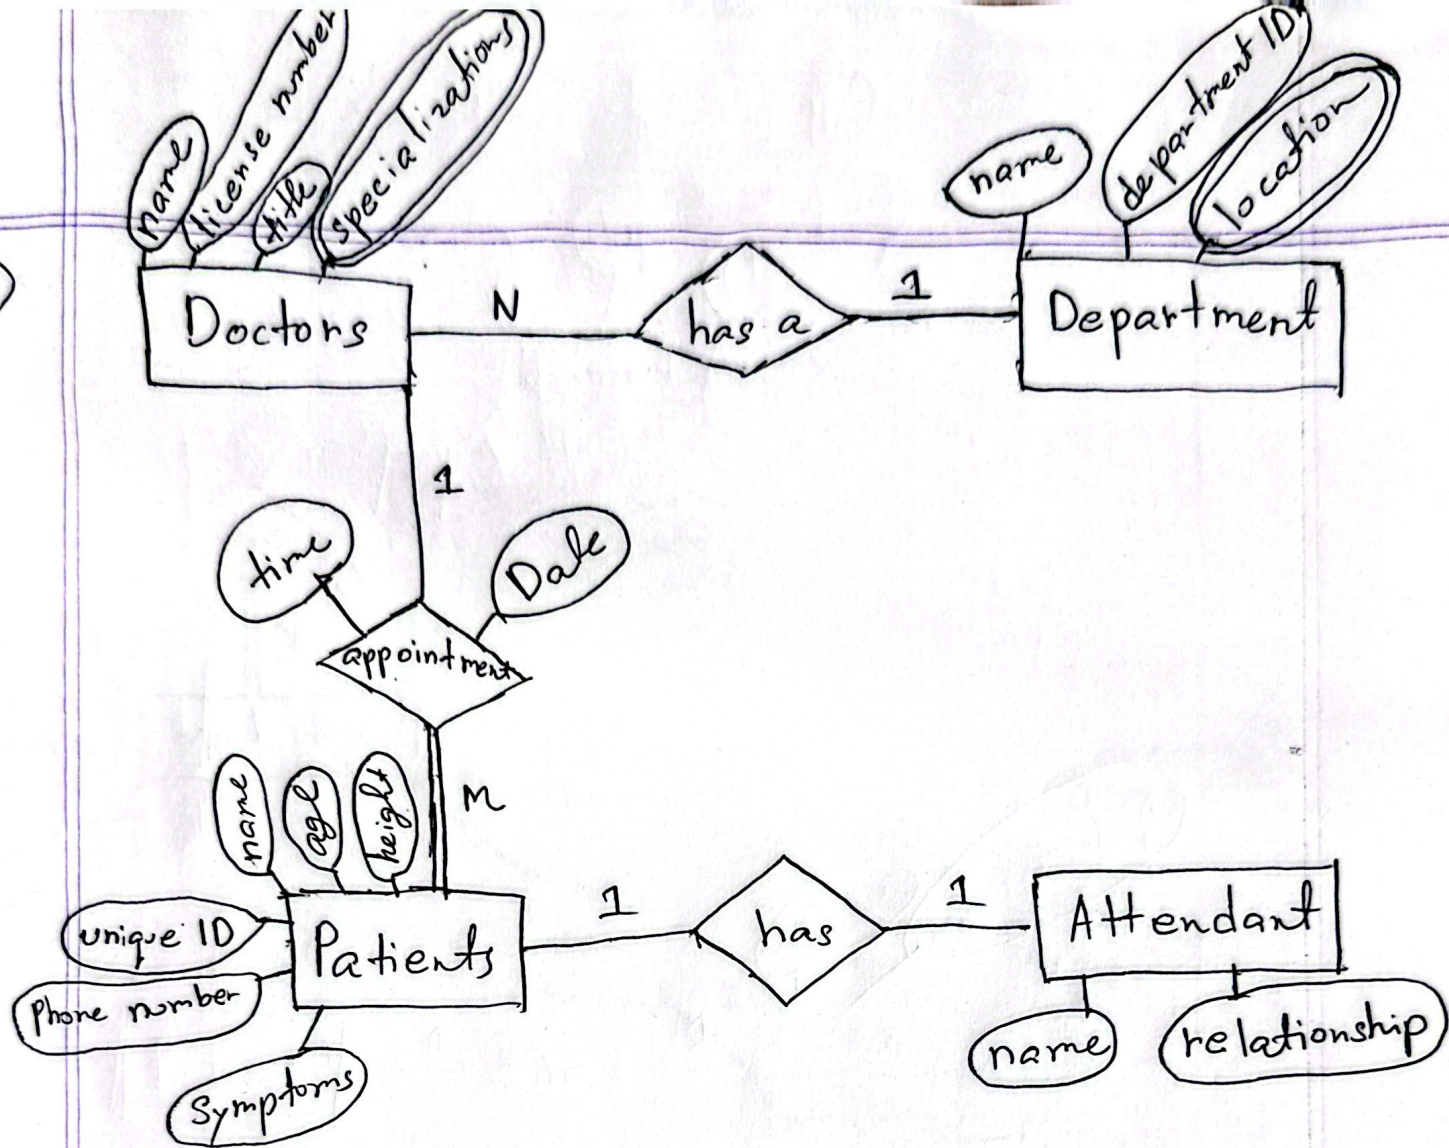 name
license number
title
specializations
name
department ID
location
Doctors
N
has a
1
Department
1
time
Date
appointment
M
name
age
height
unique ID
Phone number
Symptoms
Patients
1
has
1
Attendant
name
relationship